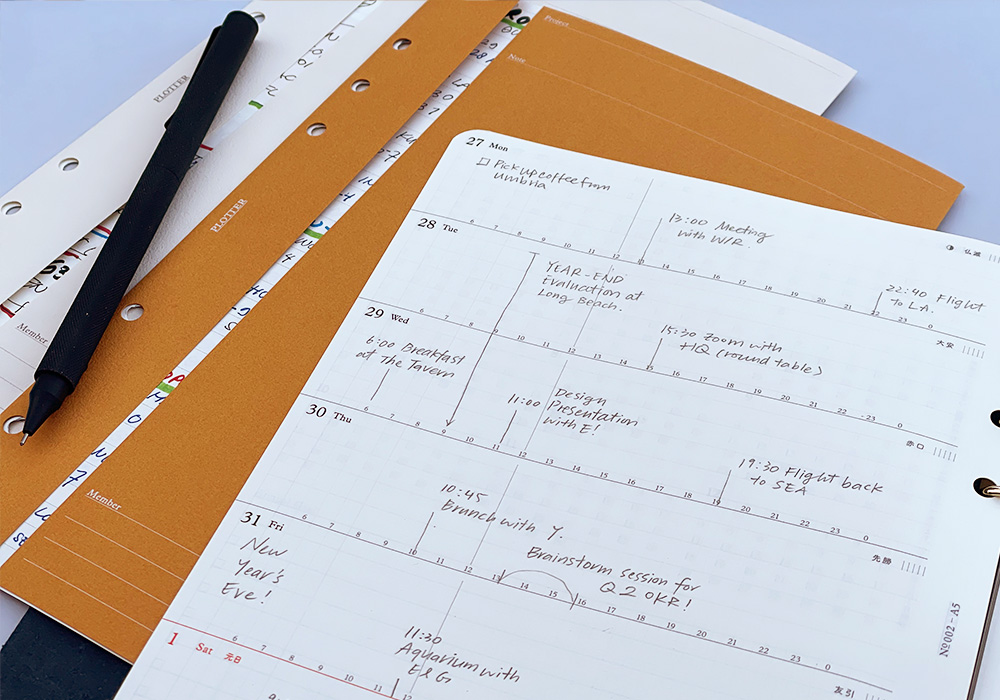 PLOTTER
PLOTTER
Project
Note
Member
Member
27 Mon
Pick up coffee from
umbria
13:00 Meeting
with W/R.
22:40 Flight
to L.A.
6 7 8 9 10 11 12 13 14 15 16 17 18 19 20 21 22 23 0
仏滅
28 Tue
YEAR-END
Evaluation at
Long Beach.
15:30 Zoom with
HQ (round table)
6 7 8 9 10 11 12 13 14 15 16 17 18 19 20 21 22 23 0
大安
29 Wed
6:00 Breakfast
at The Tavern
11:00 Design
Presentation
with E!
19:30 Flight back
to SEA
6 7 8 9 10 11 12 13 14 15 16 17 18 19 20 21 22 23 0
赤口
30 Thu
10:45
Brunch with Y.
6 7 8 9 10 11 12 13 14 15 16 17 18 19 20 21 22 23 0
先勝
31 Fri
New
Year's
Eve!
Brainstorm session for
Q2 OKR!
11:30
Aquarium with
E & G
6 7 8 9 10 11 12
友引
1 Sat 元日
Nº002-A5